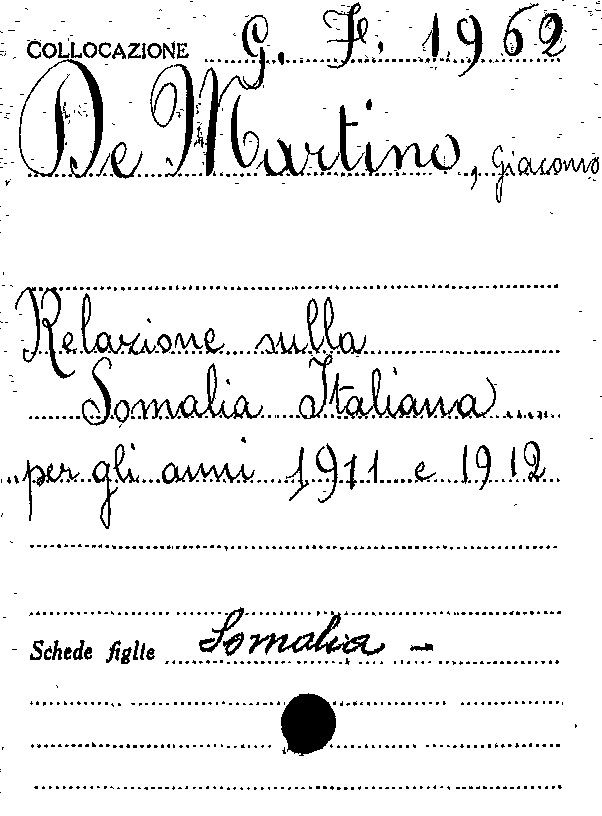 COLLOCAZIONE G. F. 1962
De Martino, Giacomo
Relazione sulla
Somalia Italiana
per gli anni 1911 e 1912
Schede figlie Somalia -